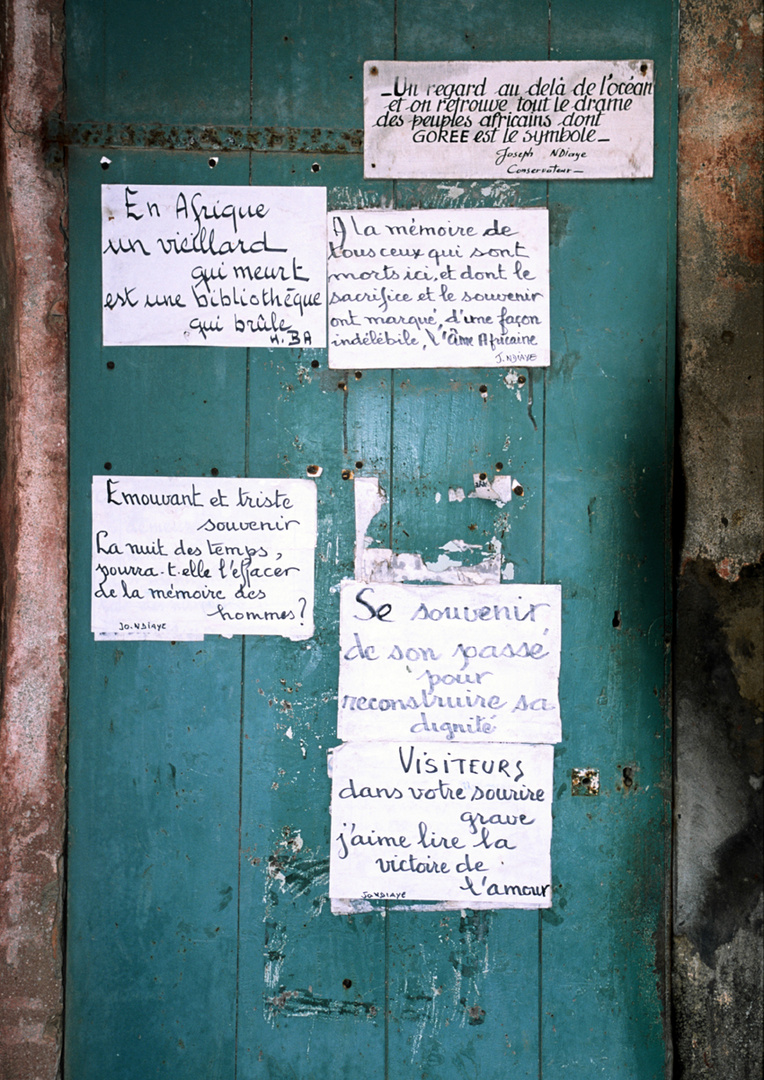 _Un regard au delà de l'océan
et on retrouve tout le drame
des peuples africains dont
GOREE est le symbole_
Joseph NDiaye
Conservateur_
En Afrique
un vieillard
qui meurt
est une bibliothéque
qui brûle
H. BA
A la mémoire de
tous ceux qui sont
morts ici, et dont le
sacrifice et le souvenir
ont marqué, d'une façon
indélébile, l'âme Africaine
J. NDIAYE
Emouvant et triste
souvenir
La nuit des temps,
pourra-t-elle l'effacer
de la mémoire des
hommes?
JO. NDIAYE
Se souvenir
de son passé
pour
reconstruire sa
dignité
VISITEURS
dans votre sourire
grave
j'aime lire la
victoire de
l'amour
Jo NDIAYE